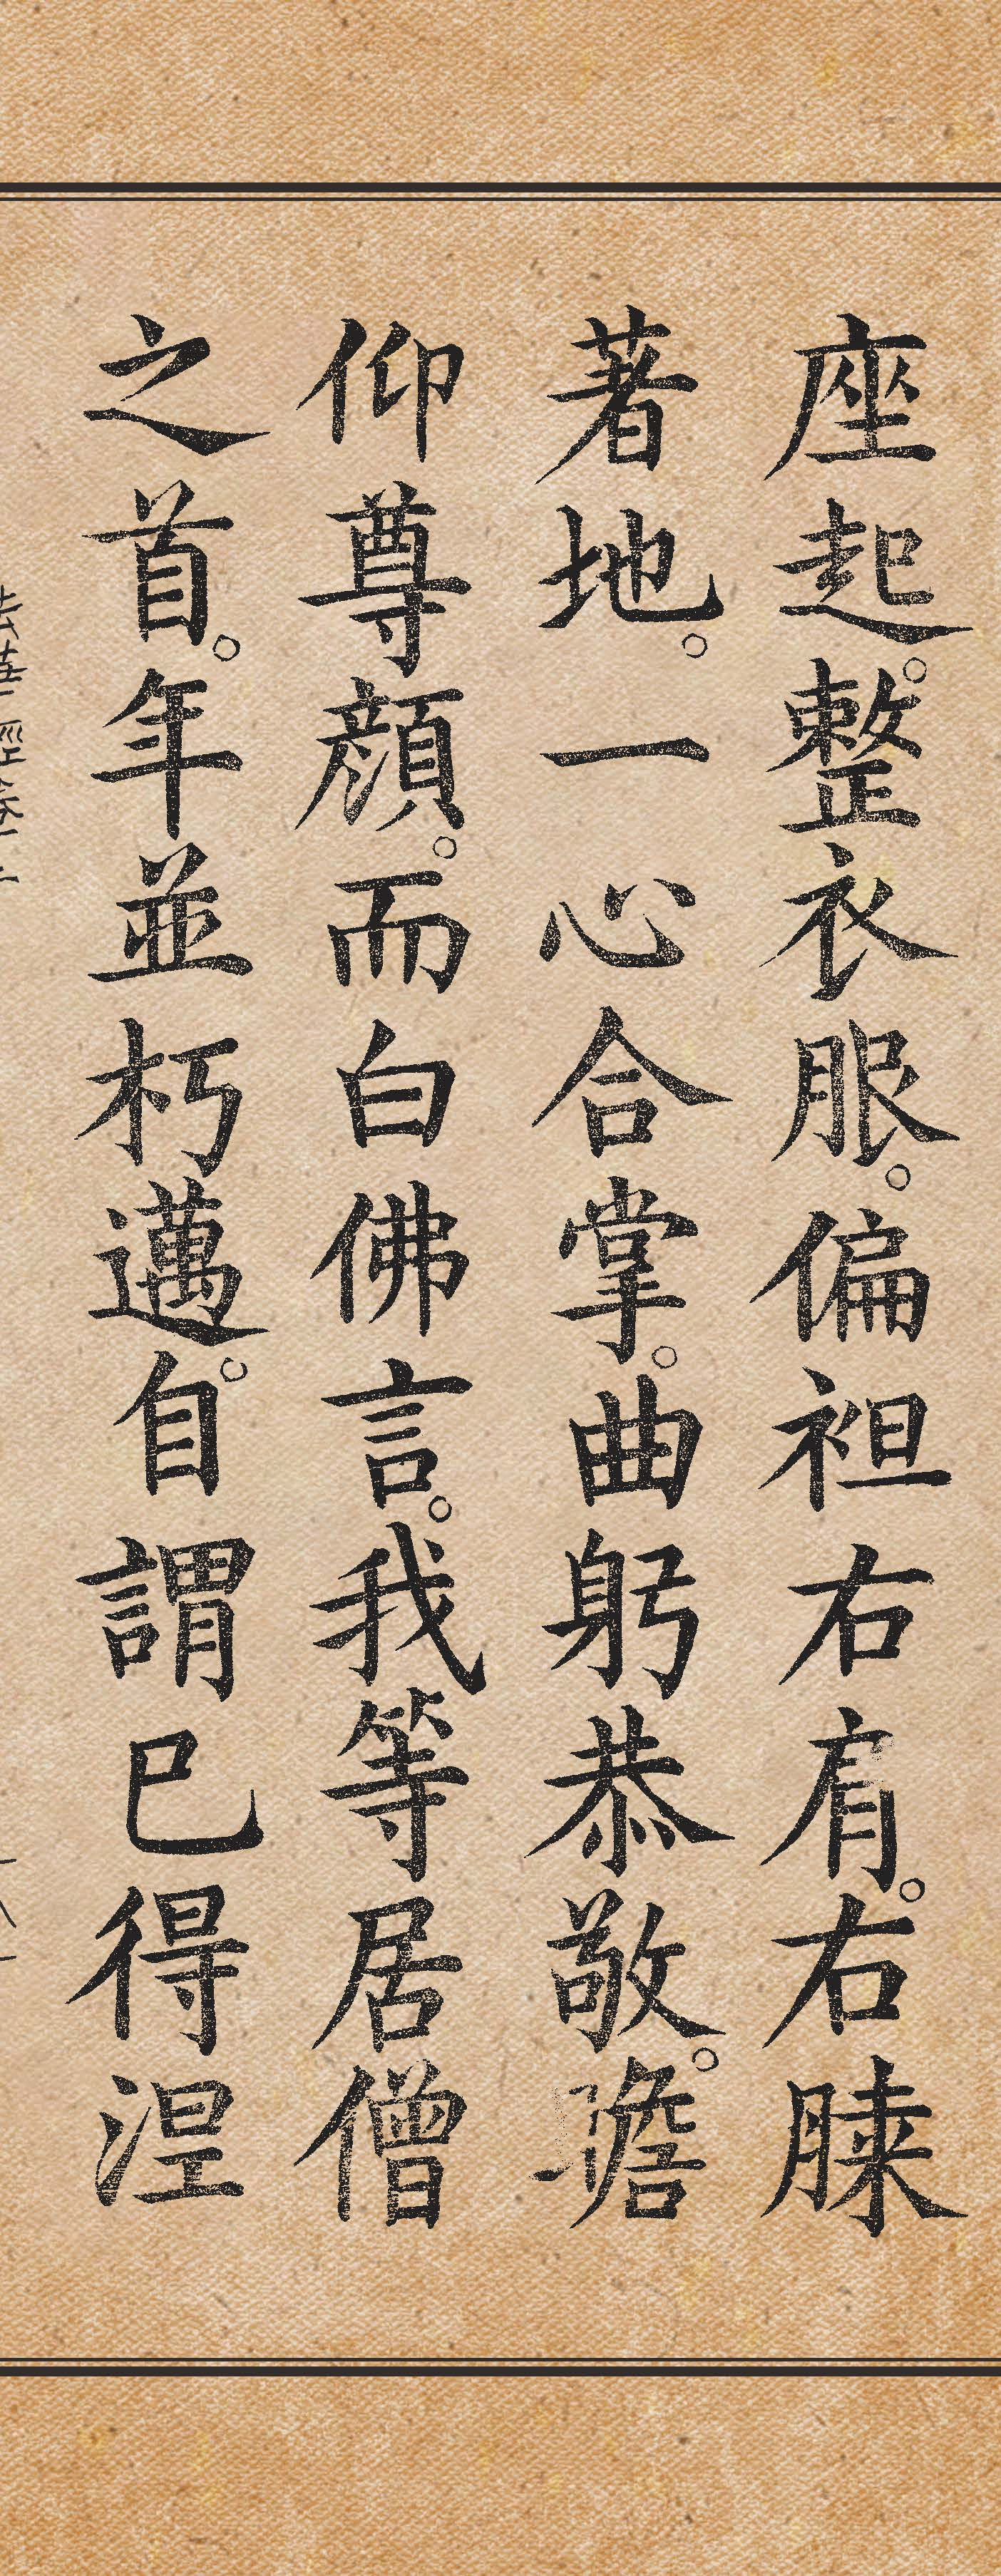 座起。整衣服。偏袒右肩。右䐗
著地。一心合掌。曲躬恭敬。瞻
仰尊顏。而白佛言。我等居僧
之首。年並朽邁。自謂已得涅